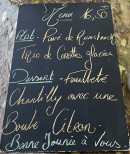 Menu 16,50
Plat - Pavé de Rumsteak
Trio de Carottes glacées
Dessert - Feuilleté
Chantilly avec une
Boule Citron.
Bonne Journée à Vous